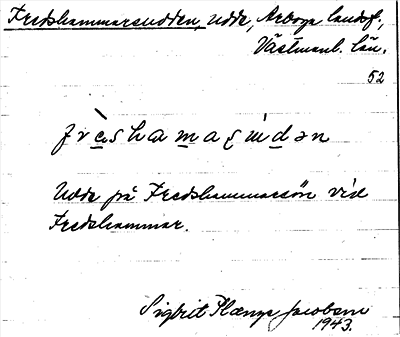 Fredshammarsudden, udde, Arboga landsf.,
Västmanl. län.
52
frèshamaṣúdən
Udde på Fredshammarsön vid
Fredshammar.
Sigbrit Plænge Jacobson
1943.